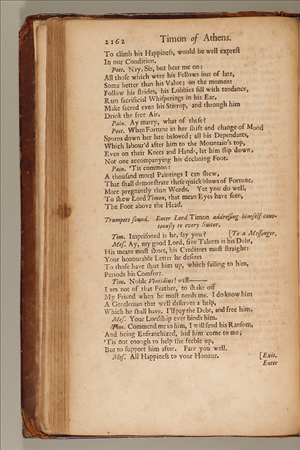 2162 Timon of Athens.
To climb his Happiness, would be well exprest
In our Condition.
Poet. Nay, Sir, but hear me on:
All those which were his Fellows but of late,
Some better than his Value; on the moment
Follow his strides, his Lobbies fill with tendance,
Rain Sacrificial Whisperings in his Ear,
Make sacred even his Stirrop, and through him
Drink the free Air.
Pain. Ay marry, what of these?
Poet. When Fortune in her shift and change of Mood
Spurns down her late beloved; all his Dependants,
Which labour'd after him to the Mountain's top,
Even on their Knees and Hands, let him slip down,
Not one accompanying his declining Foot.
Pain. 'Tis common:
A thousand moral Paintings I can shew,
That shall demonstrate these quick blows of Fortune,
More pregnantly than Words. Yet you do well,
To shew Lord Timon, that mean Eyes have seen,
The Foot above the Head.
Trumpets sound. Enter Lord Timon addressing himself cour-
teously to every Suitor.
Tim. Imprisoned is he, say you? [To a Messenger.
Mes. Ay, my good Lord, five Talents is his Debt,
His means most short, his Creditors most straight:
Your honourable Letter he desires
To those have shut him up, which failing to him,
Periods his Comfort.
Tim. Noble Ventidius! well——
I am not of that Feather, to shake off
My Friend when he most needs me. I do know him
A Gentleman that well deserves a help,
Which he shall have. I'll pay the Debt, and free him.
Mes. Your Lordship ever binds him.
Tim. Commend me to him, I will send his Ransom,
And being Enfranchized, bid him come to me;
'Tis not enough to help the feeble up,
But to support him after. Fare you well.
Mes. All Happiness to your Honour. [Exit.
Enter